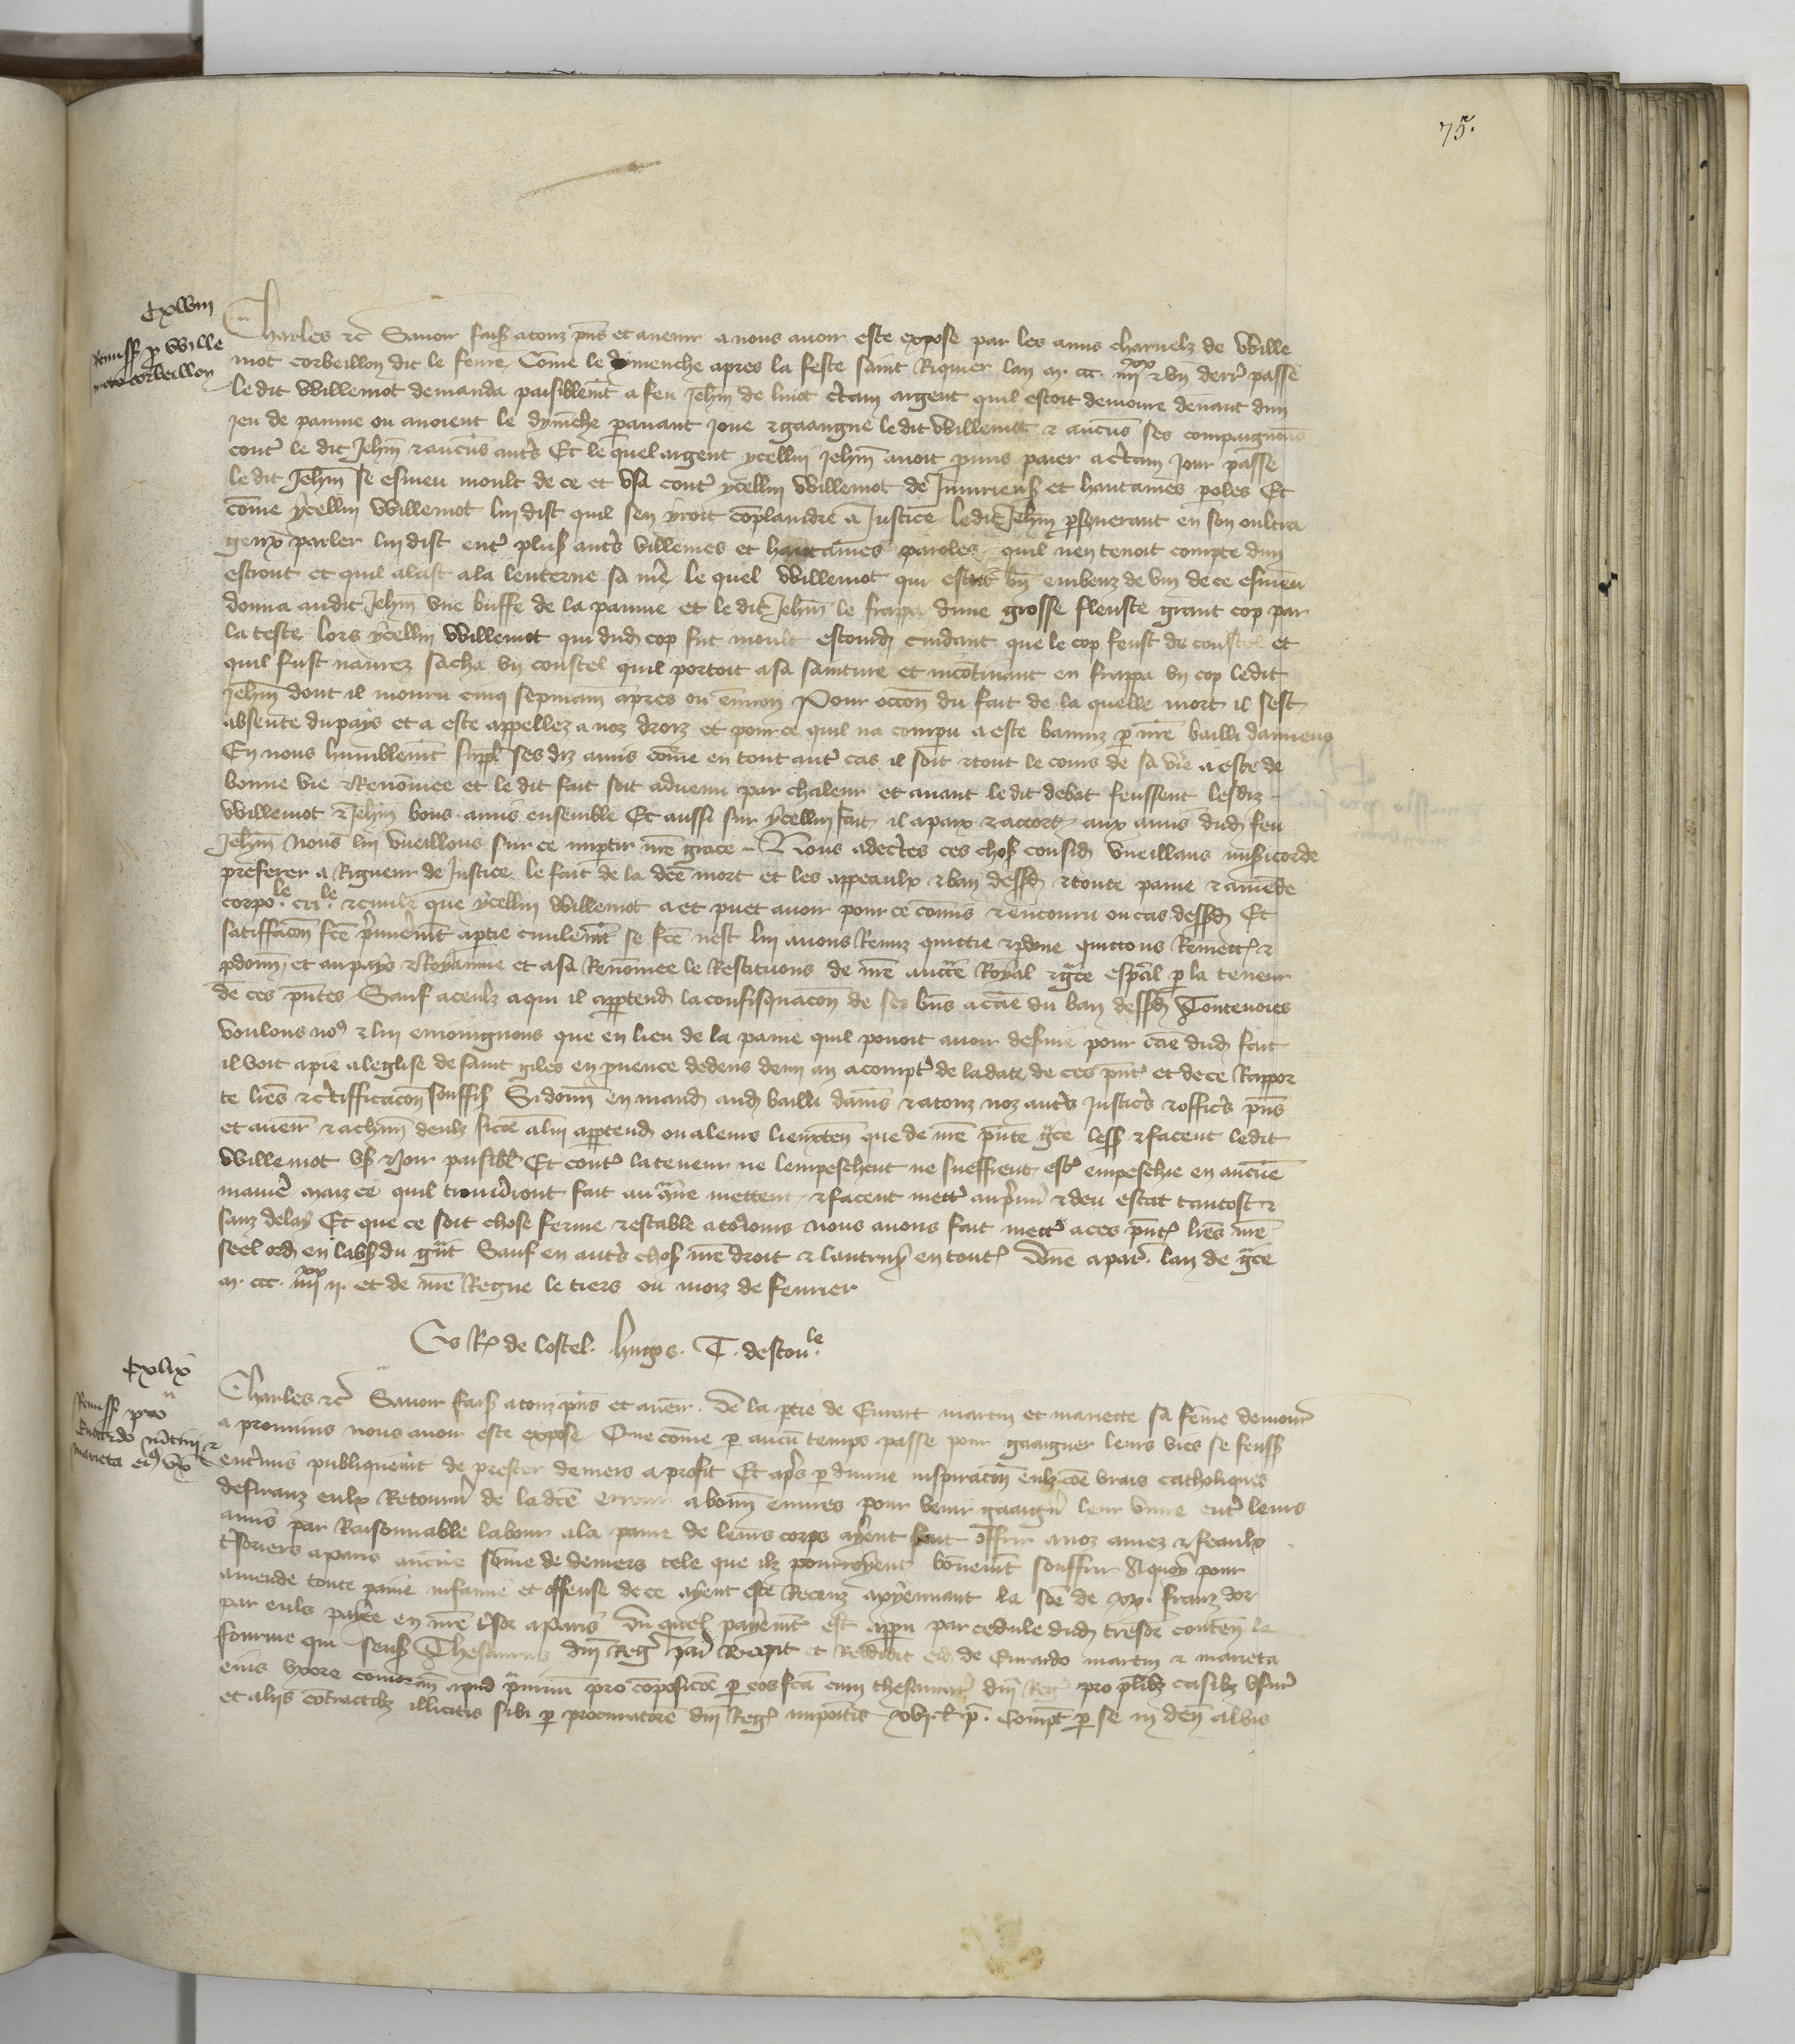 75.
Cxlviii
Remiss p Wille
moto corbeillon
Charles etc Savoir fais̄ a touz p̄ns et avenir a nous avoir este expose par les amis charnelz de Wille
mot corbeillon dit le fevre Cōme le dimenche apres la feste saint Riquier lan m. ccc. iiii xx et un derr̄ passe
le dit Willemot demanda paisiblem̄t a feu Jeh̄n de liuot c̄tain argent quil estoit demoure devant dun
jeu de paume ou avoient le dym̄che paravant joue et gaangne ledit Willemot et aucūs ses compaignons
cont̄ le dit Jeh̄n et aucūs aut̄s Et le quel argent ycellui Jeh̄n avoit p̄mis paier a c̄tain jour passe
le dit Jeh̄n se esmeu moult de ce et usa cont̄ ycellui Willemot de Injurieus̄ et hautaines p̄oles Et
cōme ycellui Willemot lui dist quil sen yroit cōplaindre a Justice ledit Jeh̄n p̄severant en son oultra
geux parler lui dist ent̄ plus̄ aut̄s villenies et hautaines paroles quil nen tenoit compte dun
estront et quil alast a la lenterne sa m̄e le quel Willemot qui estoit bn̄ embeuz de vin de ce esmeu
donna audit Jeh̄n une buffe de la paume et le dit Jeh̄n le frapa dune grosse fleuste grant cop par
la teste lors ycellui Willemot qui dud̄ cop fut moult estourd̄ cuidant que le cop feust de coustel et
quil fust navrez sacha un coustel quil portoit a sa sainture et incōtinant en frappa un cop ledit
Jeh̄n dont il mouru cinq sepmain̄ apres ou environ Pour occōn du fait de la quelle mort il sest
absente du pays et a este appellez a noz droiz et pour ce quil na comparu a este banniz p nr̄e bailli damiens
En nous humblem̄t suppl̄ ses diz amis cōme en tout aut̄ cas il soit et tout le cours de sa vie a este de
bonne vie et Renōmee et le dit fait soit advenu par chaleur et avant le dit debat feussent lesdiz
Willemot et Jeh̄n bons amis ensemble Et aussi sur ycellui fait il a paix et accort aux amis dud̄ feu
Jeh̄n Nous lui vueillons sur ce imp̄tir nr̄e grace Nous adec̄tes ces chos̄ consid̄ vueillans mis̄icorde
preferer a Rigueur de Justice le fait de la dc̄e mort et les appeaulx et ban dess̄d et toute paine et amēde
corpo.le cri.le et civile que ycellui Willemot a et puet avoir pour ce cōmis et encouru ou cas dess̄d Et
satiffacōn fc̄e p̄mierem̄t a p̄tie civilem̄t se fc̄e nest lui avons Remis quictie et p̄done quictons Remett̄ et
p̄donn̄ et au pays et Royaume et a sa Renōmee le Restituons de nr̄e auct̄e Royal et gr̄ce esp̄al p la teneur
de ces p̄ntes Sauf a ceulz a qui il app̄tend̄ la confisquacōn de ses bn̄s a cāe du ban dess̄d Toutevoies
voulons no9 et lui enjoingnons que en lieu de la paine quil povoit avoir desservie pour cāe dud̄ fait
il voit a pie a leglise de saint giles en p̄vence dedens demi an a compt̄ de la date de ces p̄nt̄ et de ce Rappor
te lr̄es et c̄tifficacōn souffis̄ Si donn̄ en mand̄ aud̄ bailli damīs et a touz noz aut̄s Justic̄s et offic̄s p̄ns
et avenir et a chūn deulz sicōe a lui app̄tend̄ ou a leurs lieuxten̄ que de nr̄e p̄nte gr̄ce less̄ et facent ledit
Willemot us̄ et Joir paisibl̄ Et cont̄ la teneur ne lempeschent ne sueffrent est̄ empeschie en aucūe
manīe Maiz ce quil trouv̄ront fait au c̄tre mettent et facent mett̄ au p̄mier et deu estat tantost et
sanz delay Et que ce soit chose ferme et estable a tojours nous avons fait mett̄ a ces p̄nt̄ lr̄es nr̄e
seel ord̄ en labs̄ du gr̄nt Sauf en aut̄s chos̄ nr̄e droit et lautruy en tout̄ Don̄e a par̄. lan de gr̄ce
m. ccc. iiii xx ii. et de nr̄e Regne le tiers ou mois de fevrier
Es Req̄ de lostel. Hugo. T. destou.le
Cxlix
Remiss pro
Evrardo m̄tini et
marieta ei9 ux̄
Charles etc Savoir fais̄ a touz p̄ns et aven̄ir. De la p̄tie de Evrart martin et mariette sa fēme demour̄
a prouvins nous avoir este expose Que cōme p aucū temps passe pour gaaigner leurs vies se feuss̄
ent̄mis publiquem̄t de prester deniers a profit Et ap̄s p divine inspiracōn eulz cōe vrais catholiques
desiranz eulx Retourn̄ de la dc̄e erreur a bonn̄ euvres pour venir gaaign̄ leur vivre ent̄ leurs
amis par Raisonnable labour a la paine de leurs corps ayent fait offrir a noz amez et feaulx
t̄soriers a paris aucune sōme de deniers tele que ilz pourroyent bōnem̄t souffrir A quoy pour
amende toute paine infamie et offense de ce ayent este Receuz a pyennant la sōe de xx. franz dor
par euls paiee en nr̄e t̄sor a Paris Du quel paiem̄t est apparu par cedule dud̄ tresor conten̄ la
fourme qui sensuit Thesaurus dn̄i Reg̃ par̄ Recepit et Reddidit eid̄ de Evrardo martin et marieta
eius uxore comorañ apud p̄uvinū pro cōposicōe p eos fcā cum thesaurar̄ dn̄i Reg̃ pro pl̄ibz casibz usur̄
et aliis cōtractibz illicitis sibi p procuratorē dn̄i Reg̃ impoītis xvi l̄ p̄. Compt̄ p se in den̄ albis